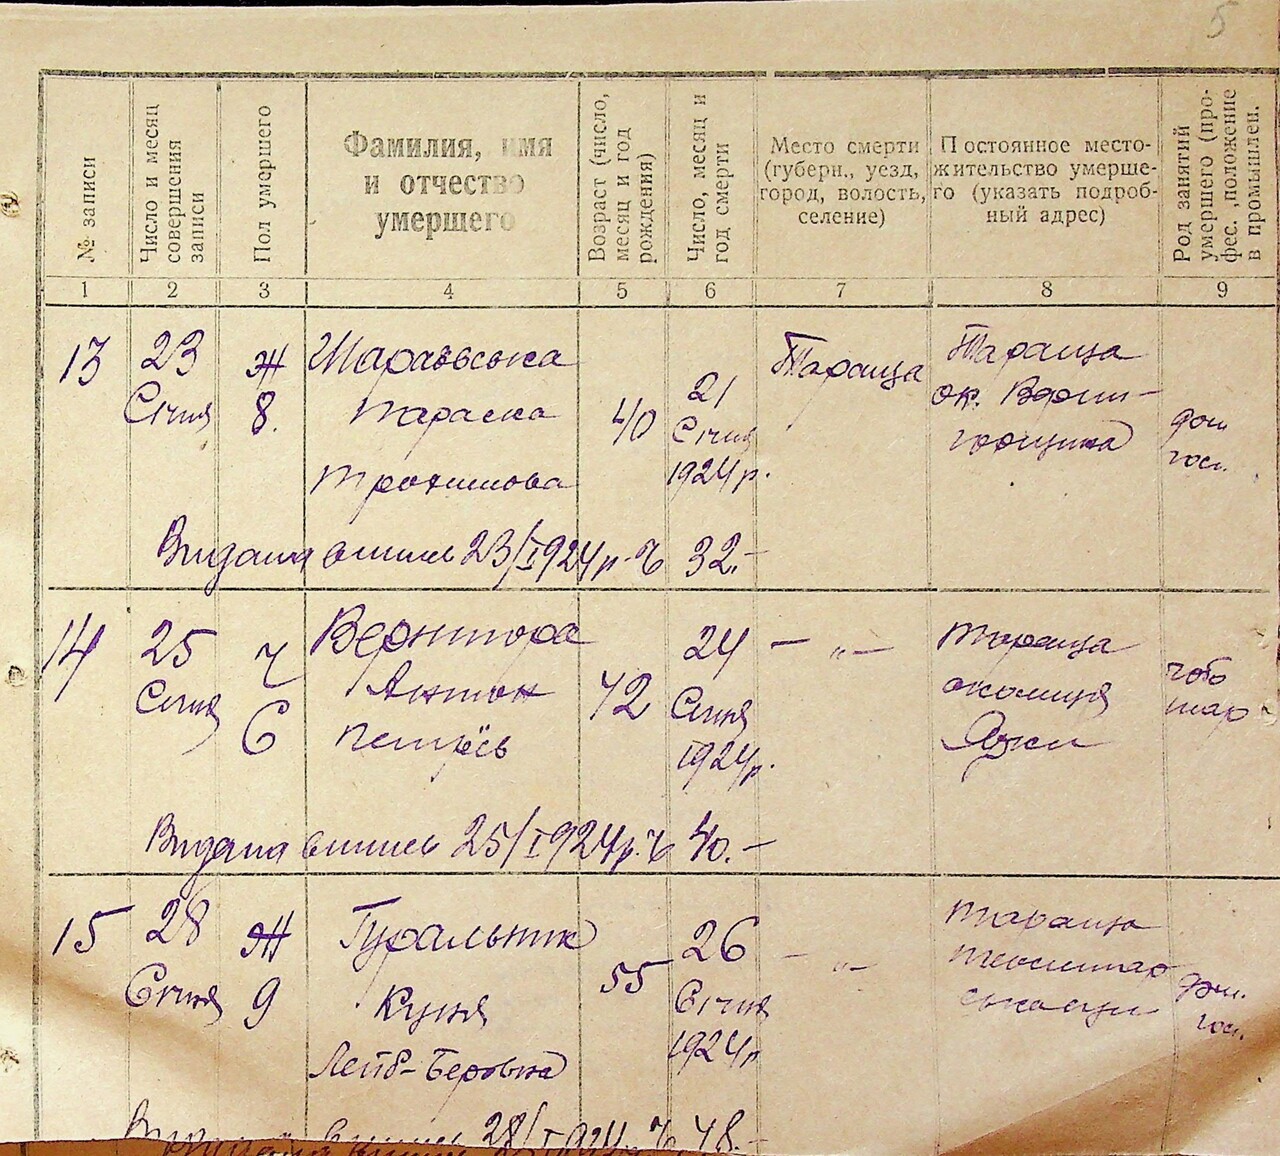 5
№ записи
Число и месяц
совершения
записи
Пол умершего
Фамилия, имя
и отчество
умершего
Возраст (число,
месяц и год
рождения)
Число, месяц и
год смерти
Место смерти
(губерн., уезд,
город, волость,
селение)
Постоянное место-
жительство умерше-
го (указать подроб-
ный адрес)
Род занятий
умершего (про-
фес., положение
в промышлен.
1 2 3 4 5 6 7 8 9
13
23
Січня
Ж
8.
Параска
40
21
Січня
1924 р.
Тараща
Тараща
ок.
дом
госп.
Видана 23/I 1924 р. № 32.-
14
25
Січня
Ч
6
Вернигора
Антон
72
24
Січня
1924 р.
— „ —
Тараща
околиця
Видана 25/I 1924 р. № 40.-
15
28
Січня
Ж
9
Гуральник
Куня
Лейб-Беровна
55
26
Січня
1924 р
- „ -
Тараща
дом.
госп.
28/I 1924 р. № 48.-